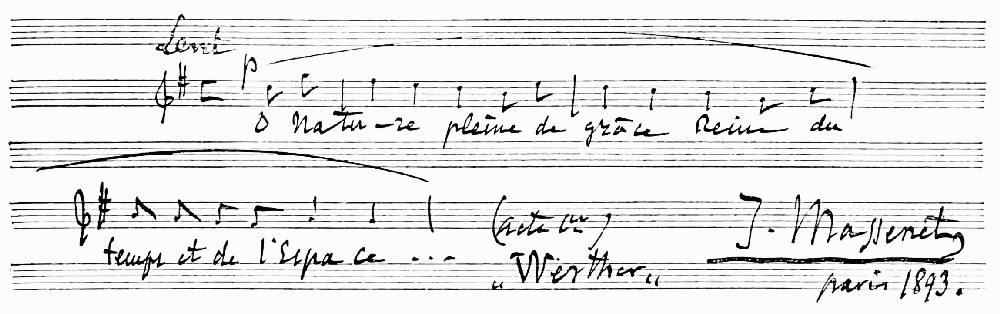 Lent
p
O Natu-re pleine de grâce Reine du
temps et de l'Espace ...
(acte 1er)
„Werther„
J. Massenet
paris 1893.